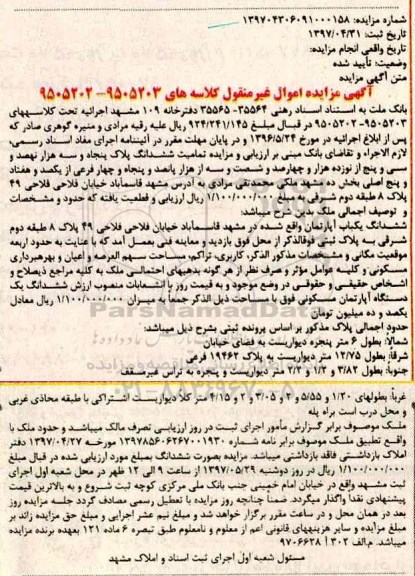 شماره مزایده: ۱۳۹۷۰۴۳۰۶۰۹۱۰۰۰۱۵۸
تاریخ ثبت: ۱۳۹۷/۰۴/۳۱
تاریخ واقعی انجام مزایده:
وضعیت: تأیید شده
متن آگهی مزایده
آگهی مزایده اموال غیرمنقول کلاسه های ۹۵۰۵۲۰۳-۹۵۰۵۲۰۲
بانک ملت به استناد اسناد رهنی ۳۵۵۶۴- ۳۵۵۶۵ دفترخانه ۱۰۹ مشهد اجرائیه تحت کلاسه‌های
۹۵۰۵۲۰۳-۹۵۰۵۲۰۲ در قبال مبلغ ۹۲۴/۲۴۱/۱۴۵ ریال علیه رقیه مرادی و منیره گوهری صادر که
پس از ابلاغ اجرائیه در مورخ ۱۳۹۶/۵/۲۴ و در پایان مهلت مقرر در آئیننامه اجرای مفاد اسناد رسمی
لازم الاجراء و تقاضای بانک مبنی بر ارزیابی و مزایده تمامیت ششدانگ پلاک پنجاه و سه هزار نهصد و
سی و پنج از نوزده هزار و چهارصد و شصت و سه از هزار پانصد و پنجاه و چهار فرعی از یکصد و هفتاد
و پنج اصلی بخش ده مشهد ملکی محمدتقی مرادی به آدرس مشهد قاسمآباد خیابان فلاحی فلاحی ۴۹
پلاک ۸ طبقه دوم شرقی به مبلغ ۱/۱۰۰/۰۰۰/۰۰۰ ریال ارزیابی و قطعیت یافته که حدود و مشخصات
و توصیف اجمالی ملک بدین شرح میباشد:
ششدانگ یکباب آپارتمان واقع شده در مشهد قاسمآباد خیابان فلاحی فلاحی ۴۹ پلاک ۸ طبقه دوم
شرقی به پلاک ثبتی فوقالذکر از محل فوق بازدید و معاینه فنی بعمل آمد که با عنایت به حدود اربعه
موقعیت مکانی و مشخصات مذکور الذکر، کاربری، تراکم، مساحت سهم العرصه و اعیان و بهره‌برداری
مسکونی و کلیه عوامل مؤثر و صرف نظر از هر گونه بدهیهای احتمالی ملک به کلیه مراجع ذیصلاح و
اشخاص حقیقی و حقوقی در وضع موجود و به قیمت روز با انشعابات منصوب ارزش ششدانگ یک
دستگاه آپارتمان مسکونی فوق با مساحت ذیل الذکر جمعاً به میزان ۱/۱۰۰/۰۰۰/۰۰۰ ریال معادل
یکصد و ده میلیون تومان
حدود اجمالی پلاک مذکور بر اساس پرونده ثبتی بشرح ذیل میباشد:
شمالا: بطول ۶ متر پنجره دیواریست به فضای خیابان
شرقا: بطول ۱۲/۷۵ متر دیواریست به پلاک ۱۹۴۶۲ فرعی
جنوبا: بطول ۳/۸۲ و ۱/۲ و ۲/۲ متر دیواریست و پنجره به تراس غیرمسقف
غربا: بطولهای ۱/۲۰ و ۵/۵۵ و ۲ و ۳/۰۵ و ۲ و ۴/۱۵ متر کلا دیواریست اشتراکی با طبقه محاذی غربی
و محل درب است براه پله
ملک موصوف برابر گزارش مأمور اجرای ثبت در روز ارزیابی تصرف مالک میباشد و حدود ملک با
واقع تطبیق ملک موصوف برابر نامه شماره ۱۳۹۷۸۵۶۰۶۲۶۷۰۰۱۹۳۰ مورخه ۱۳۹۷/۰۴/۲۷ دفتر
املاک بازداشتی فاقد بازداشتی میباشد. مزایده بصورت ششدانگ بمبلغ مورد ارزیابی شده در قبال مبلغ
۱/۱۰۰/۰۰۰/۰۰۰ ریال در روز دوشنبه ۱۳۹۷/۰۵/۲۹ از ساعت ۹ الی ۱۲ ظهر در محل شعبه اول اجرای
ثبت مشهد واقع در خیابان امام خمینی جنب بانک ملی مرکزی کوچه ثبت شروع و به بالاترین قیمت
پیشنهادی نقدا واگذار میگردد. ضمناً چنانچه روز مزایده با تعطیل رسمی مصادف گردد جلسه مزایده روز
بعد در همان محل و در ساعت مقرر برگزار خواهد شد و مبلغ نیم عشر اجرایی و مبلغ حق مزایده زائد بر
مبلغ مزایده و سایر هزینههای قانونی اعم از معلوم و نامعلوم طبق تبصره ۶ ماده ۱۲۱ بعهده برنده مزایده
میباشد. م.الف ۳۰۲ آ ۹۷۰۶۶۲۸
مسئول شعبه اول اجرای ثبت اسناد و املاک مشهد